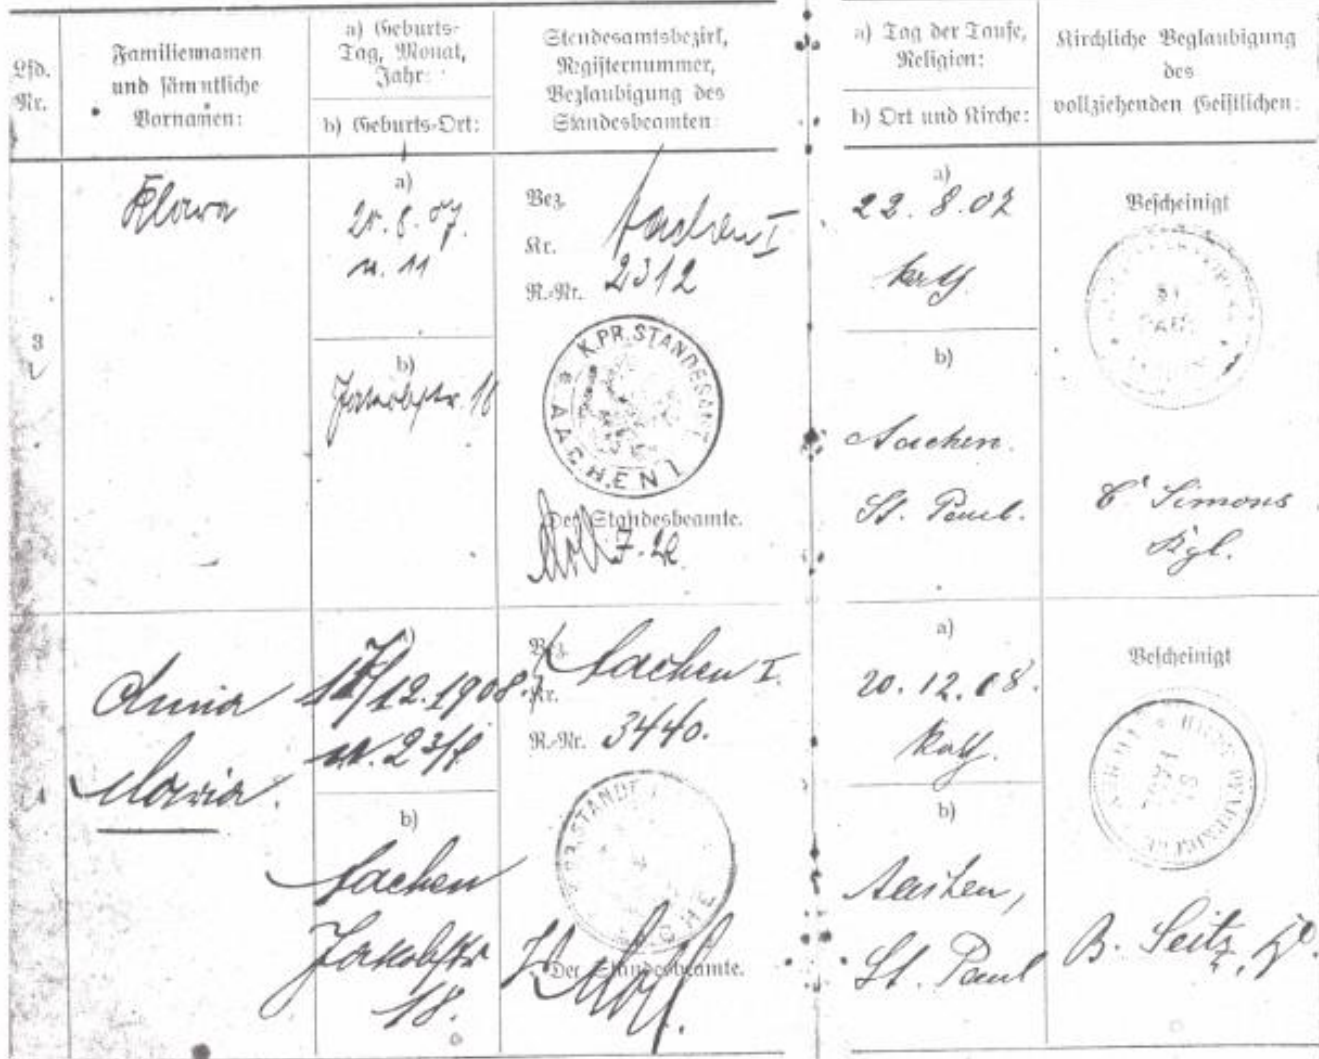 Lfd.
Nr.
Familiennamen
und sämtliche
Vornamen:
a) Geburts-
Tag, Monat,
Jahr:
b) Geburts-Ort:
Standesamtsbezirk,
Registernummer,
Beglaubigung des
Standesbeamten:
a) Tag der Taufe,
Religion:
b) Ort und Kirche:
Kirchliche Beglaubigung
des
vollziehenden Geistlichen:
3
Klara
a)
8.07.
n. 11
b)
Jakobstr. 18
Bez.
Kr.
Aachen I
R.-Nr. 2312
K.PR.STANDESAMT
AACHEN I
Der Standesbeamte.
a)
22. 8. 07
kath.
b)
Aachen.
St. Paul.
Bescheinigt
Simons
4
Anna
Maria.
a)
17/12.1908.
b)
Aachen
Jakobstr
18.
Bez.
Kr.
Aachen I.
R.-Nr. 3440.
Der Standesbeamte.
a)
20. 12. 08.
kath.
b)
Aachen,
St. Paul
Bescheinigt
B. Seitz,